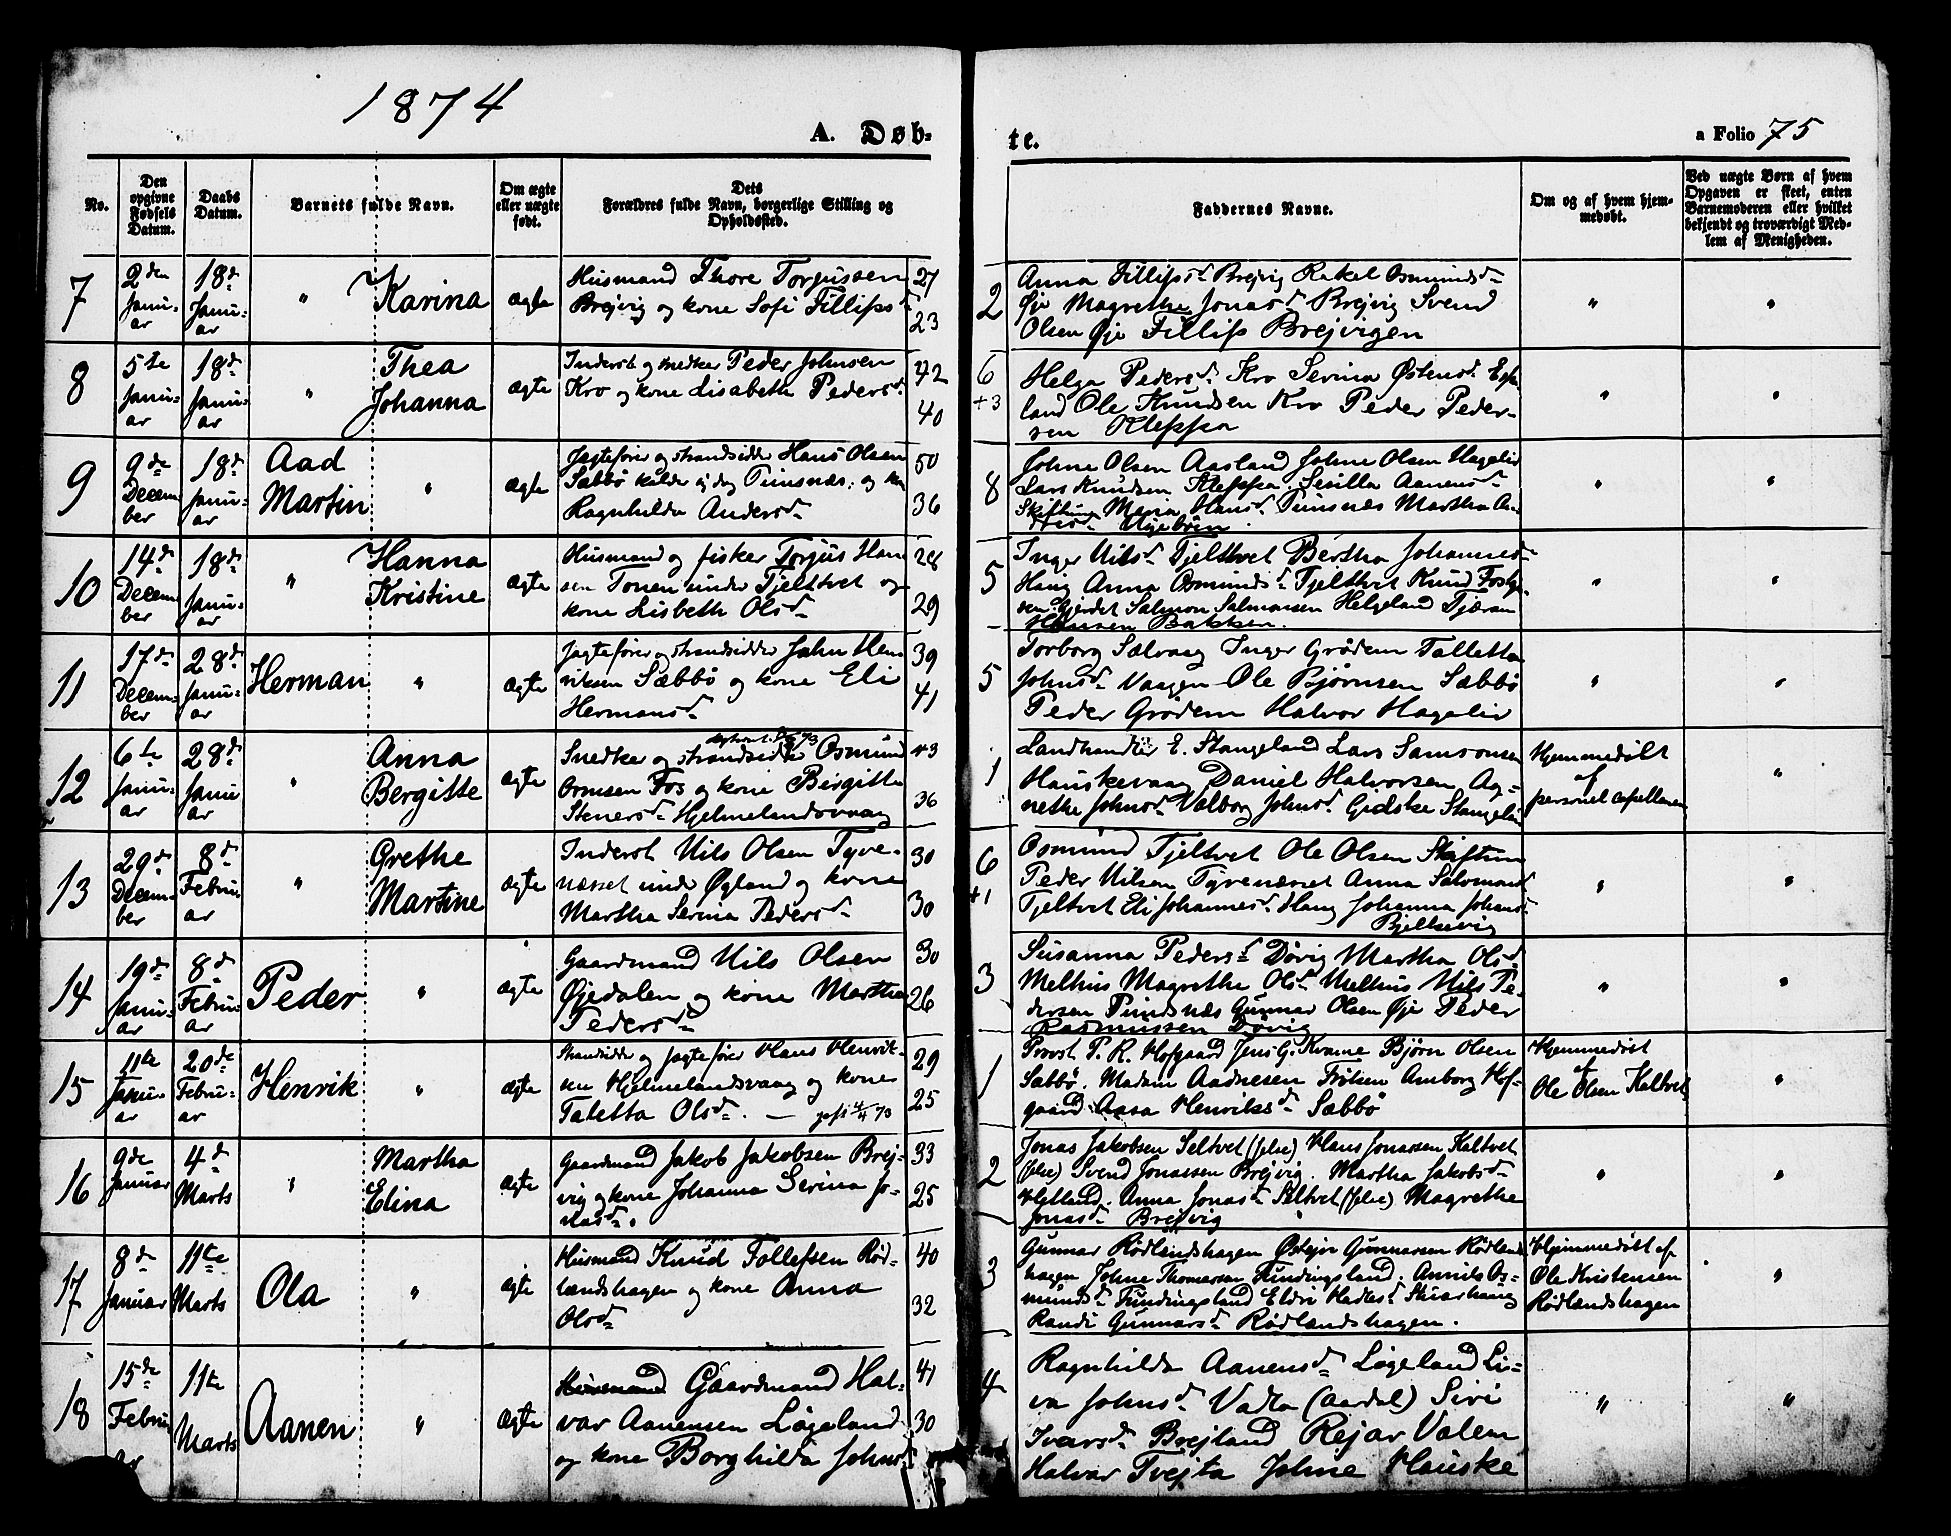 1874
A. Døb-
te.
a Folio 75
No.
Den opgivne Fødsels Datum.
Daabs Datum.
Barnets fulde Navn.
Om ægte eller uægte født.
Dets Forældres fulde Navn, borgerlige Stilling og Opholdssted.
Faddernes Navne.
Om og af hvem hjemmedøbt.
Ved uægte Børn af hvem Opgaven er skeet, enten Barnemoderen eller hvilket bekjendt og troværdigt Medlem af Menigheden.
7
2den Januar
18d Januar
"
Karina
ægte
Husmand Thore Torgussen
Brejvig og kone Sofi Fillipsd
27
23
2
Anna Fillipsd Brejvig Rakel Osmundsd
Øje Magrethe Jonasd Brejvig Svend
Olsen Øje Fillip Brejvigen
"
"
8
5te Januar
18d Januar
"
Thea
Johanna
ægte
Inderst og snedker Peder Johnsen
Kro og kone Lisabeth Pedersd
42
40
6
+3
Helga Pedersd Kro Serina Østensd Esp-
land Ole Knudsen Kro Peder Peder-
sen Kleppa
"
"
9
9de December
18d Januar
Aad
Martin
"
ægte
Jagtefører og strandsidder Hans Olsen
Sæbbø og kone
Ragnhilda Andersd
50
36
8
Johne Olsen Aasland Johne Olsen Hagelid
Lars Knudsen Kleppa Sesilla Aanensd
Skiftun Maria Hansd Martha
"
"
10
14d December
18d Januar
"
Hanna
Kristine
ægte
Husmand og fisker Torjus Han-
sen Tonen under Tjeltvet og
kone Lisbeth Olsd
28
29
5
Inger Nilsd Tjeltvet Bertha Johannesd
Haug Anna Osmundsd Tjeltvet Knud
Gjerdet Salmon Salmonsen Helgeland Tjæran
Hansen Bakken.
"
"
11
17d December
28d Januar
Herman
"
ægte
Jagtefører og strandsidder John Hen-
riksen Sæbbø og kone Eli
Hermansd
39
41
5
Torborg Sælvaag Inger Grødem Talletta
Johnsd Vaagen Ole Bjørnsen Sæbbø
Peder Grødem Halvor Hagelid
"
"
12
6te Januar
28d Januar
"
Anna
Bergitte
ægte
Snedker og strandsidder Osmund
Ormsen Fos og kone Birgitte
Stenersd Hjelmelandsvaag
43
36
1
Landhandler E. Stangeland Lars Samsonsen
Hauskevaag Daniel Halvorsen Ag-
nethe Johnsd Valborg Johnsd Gidske Stangeland
Hjemmedøbt
af
personel capellanen
"
13
29d December
8d Februar
"
Grethe
Martine
ægte
Inderst Nils Olsen Tyve-
næsset under Øyland og kone
Martha Serina Pedersd
30
30
6
+1
Osmund Tjeltvet Ole Olsen Skiftun
Peder Nilsen Tyvenæsset Anna Salomonsd
Tjeltvet Eli Johannesd Haug Johanna Johansd
"
"
14
19d Januar
8d Februar
Peder
"
ægte
Gaardmand Nils Olsen
Øjedalen og kone Martha
Pedersd
30
26
3
Susanna Pedersd Døvig Martha Olsd
Melhus Magrethe Olsd Melhus Nils Pe-
dersen Gunnar Olsen Øje Peder
Rasmussen Døvig
"
"
15
11te Januar
20de Februar
Henrik
"
ægte
Strandsidder og Jagtefører Hans Henrik-
sen Hjelmelandsvaag og kone
Taletta Olsd
29
25
1
Provst P. R. Hofgaard Jens G. Kvame Bjørn Olsen
Sæbbø. Madam Aadnesen Frøken Amborg Hof-
gaard Aasa Henriksd Sæbbø
Hjemmedøbt
af
Ole Olsen Kaltvet
"
16
9de Januar
4d Marts
"
Martha
Elina
ægte
Gaardmand Jakob Jakobsen Brej-
vig og kone Johanna Serina Jo-
nasd.
33
25
2
Jonas Jakobsen Seltvet Hans Jonassen Kaltvet
Svend Jonassen Brejvig. Martha Jakobsd
Hetland. Anna Jonasd Seltvet Magrethe
Jonasd Brejvig
"
"
17
8d Januar
11te Marts
Ola
"
ægte
Husmand Knud Tollefsen Rød-
landshagen og kone Anna
Olsd
40
32
3
Gunnar Rødlandshagen Østejn Gunnarsen Rødlands
hagen Johne Thomassen Fundingsland. Annils Os-
mundsd Fundingsland Eldri Hadlesd
Randi Gunnarsd Rødlandshagen.
Hjemmedøbt af
Ole Kristensen
Rødlandshagen
"
18
15de Februar
11te Marts
Aanen
"
ægte
Husmand Gaardmand Hal-
var Aanensen Løgeland
og kone Borghilda Johnsd
41
30
4
Ragnhilda Aanensd Løgeland Li-
va Johnsd Vadla (Aardal) Siri
Ivarsd Brejland Rejar Valem
Halvar Tvejta Johne Hauske
"
"